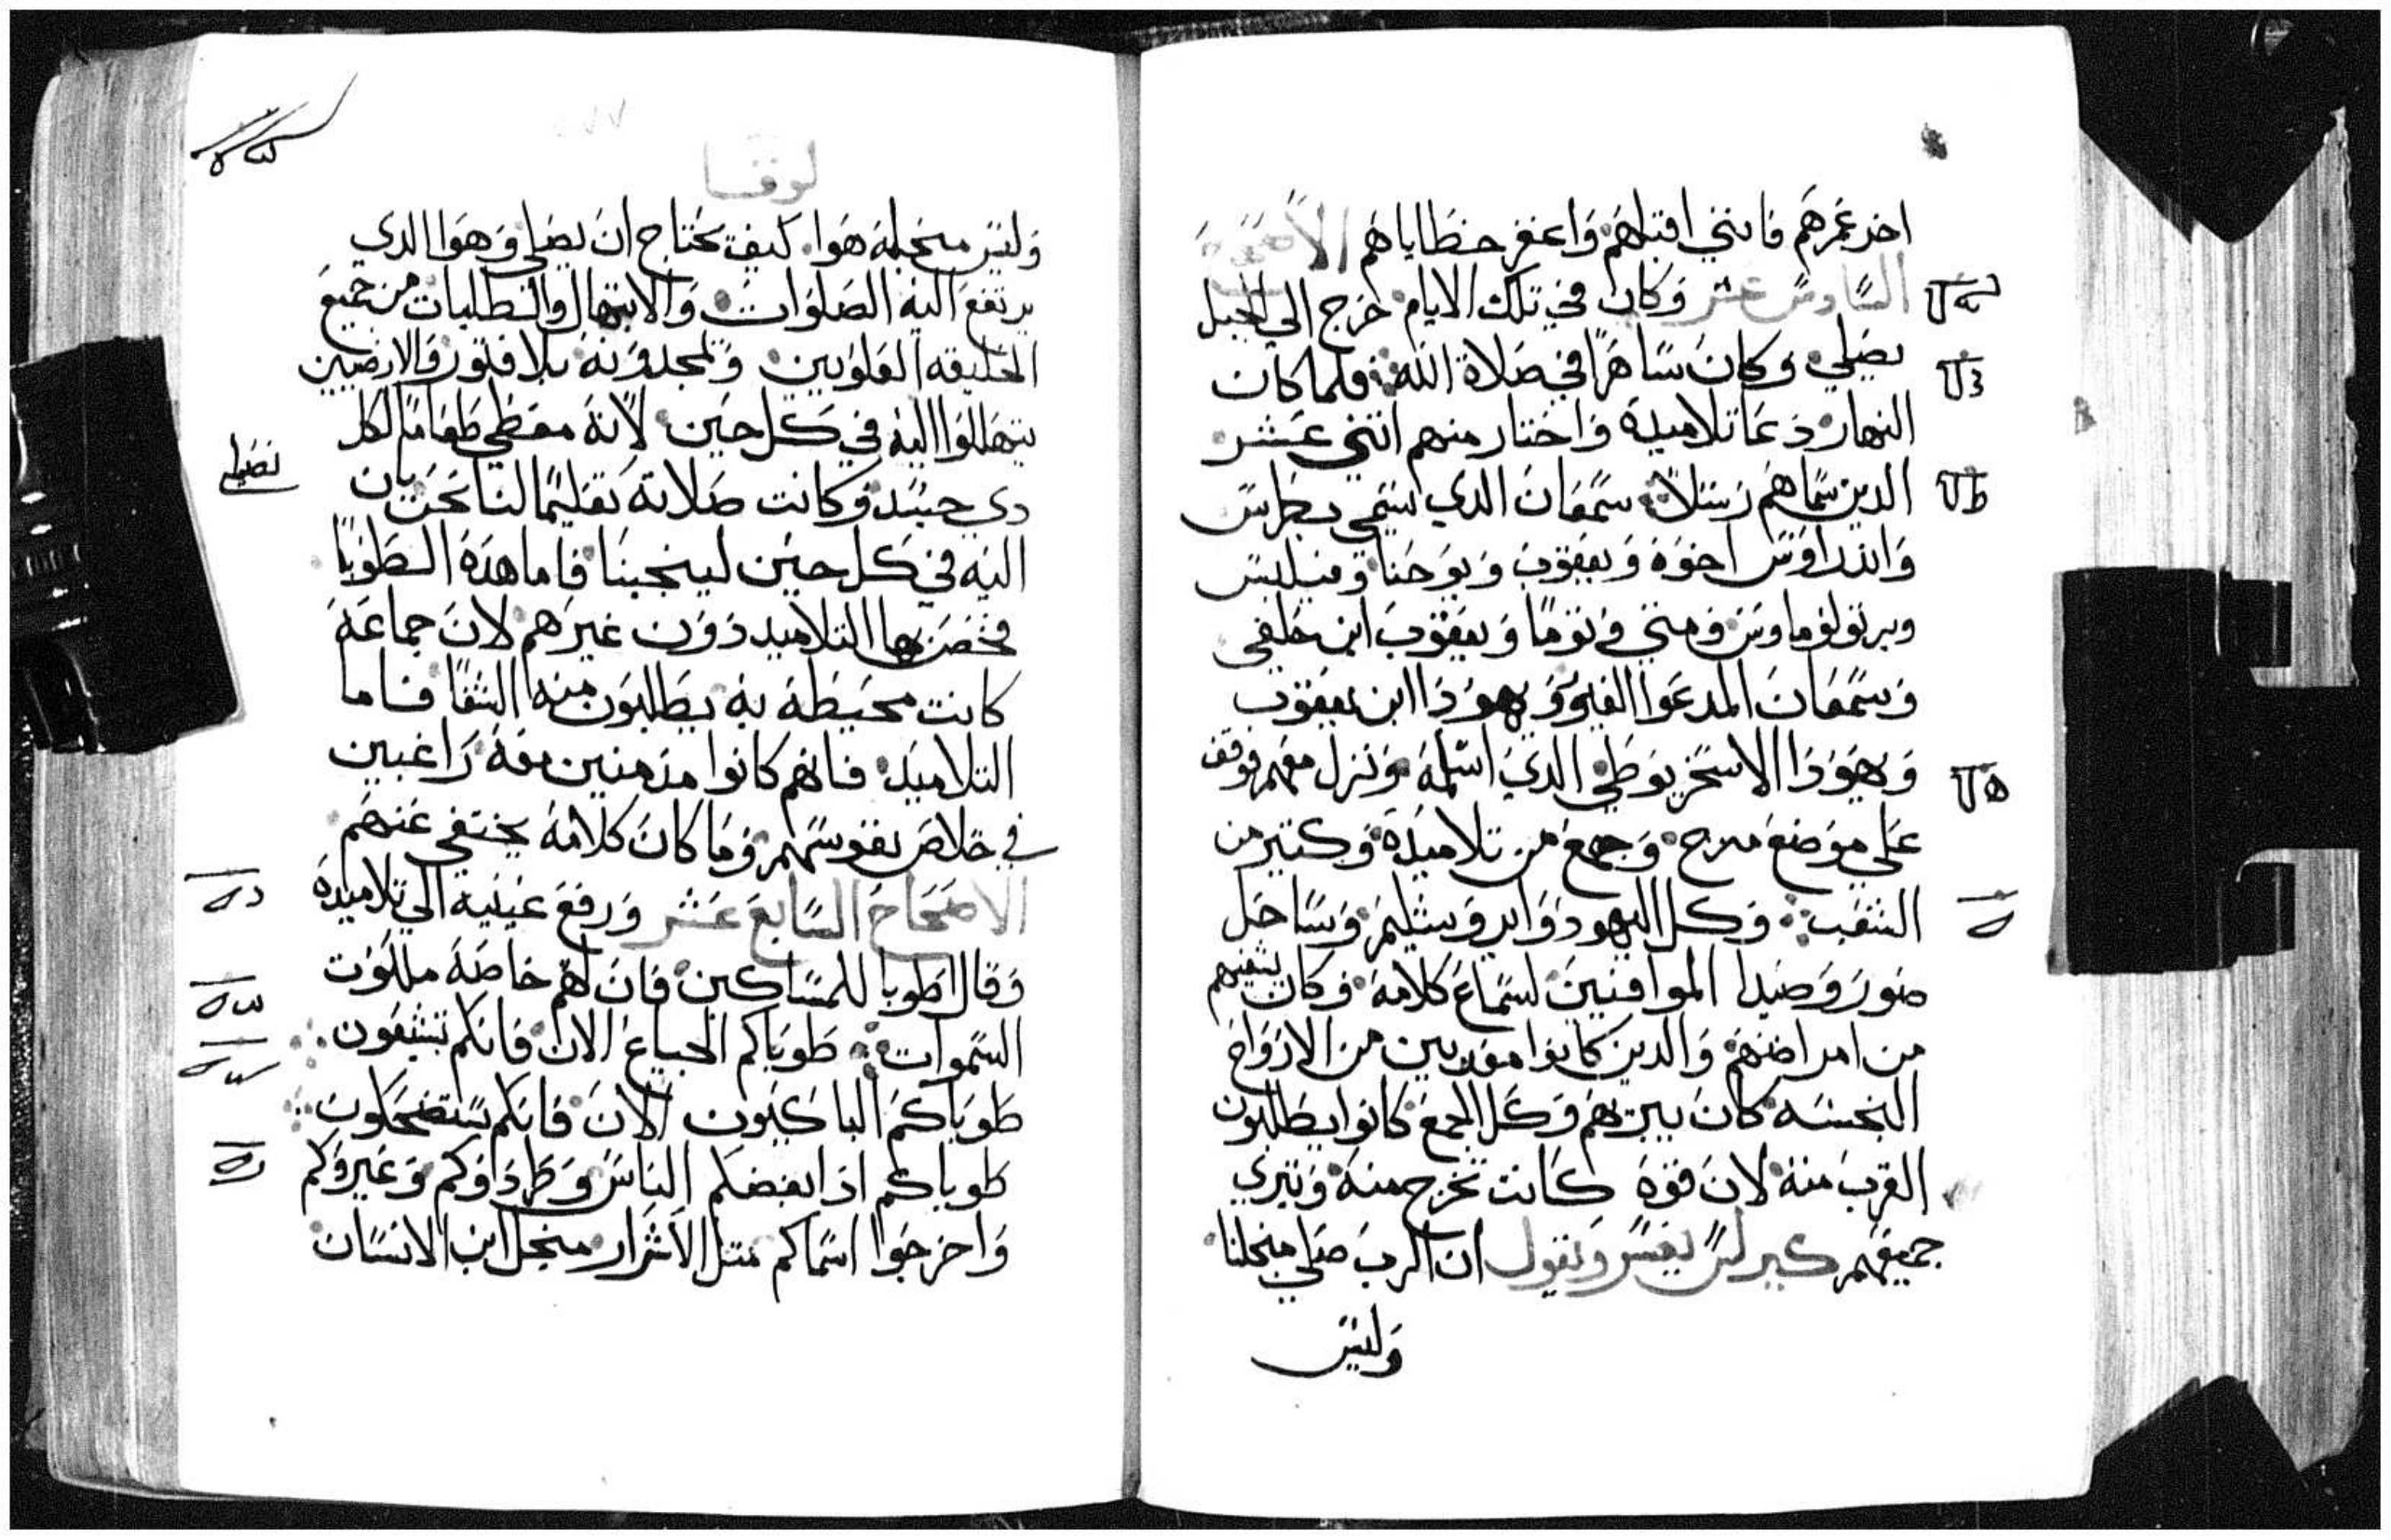 اخد عمرهم فانني اقبلهم واغفر خطاياهم الاصحاح
السادس عشر وكان في تلك الايام خرج الي الجبل
يصلي وكان ساهرا في صلاة الله فلما كان
النهار دعا تلاميده واختار منهم اتني عشر
الدين سماهم رسلا سمعان الدي سمي بطرس
واندراوس اخوه ويعقوب ويوحنا وفيلبس
وبرتولوماوس ومتي وتوما ويعقوب ابن حلفي
وسمعان المدعوا الغيور ويهودا ابن يعقوب
ويهودا الاسخريوطي الدي اسلمه ونزل معهم فوقف
علي موضع مرج وجمع من تلاميده وكتير من
الشعب وكل اليهود وايروشليم وساحل
صور وصيدا الموافيين لسماع كلامه وكان يشفيهم
من امراضهم والدين كانوا معدبين من الارواح
النجسه كان يبريهم وكل الجمع كانوا يطلبون
القرب منه لان قوه كانت تخرج منه وتبري
جميعهم كيرلس يفسر ويقول ان الرب صلي منجلنا
وليس
لوقا
وليس منجله هوا كيف يحتاج ان يصلي وهوا الدي
يرتفع اليه الصلوات والابتهال والطلبات من جميع
الخليقه العلويين ويمجدونه بلا فتور والارضيين
يتهللوا اليه في كل حين لانه معطي طعاما لكل
دي جسد وكانت صلاته تعليما لنا نحن بان
نصلي
اليه في كل حين لينجينا فاما هده الطوبا
فخص بها التلاميد دون غيرهم لان جماعه
كانت محيطه به يطلبون منه الشفا فاما
التلاميد فانهم كانوا مدمنين معه راغبين
في خلاص نفوسهم وما كان كلامه يختفي عنهم
الاصحاح السابع عشر ورفع عينيه الي تلاميده
وقال طوبا للمساكين فان لهم خاصه ملكوت
السموات طوباكم الجياع الان فانكم تشبعون
طوباكم الباكيون الان فانكم ستضحكون
طوباكم ادا ابغضكم الناس وطردوكم وعيروكم
واخرجوا اسماكم متل الاشرار منجل ابن الانسان